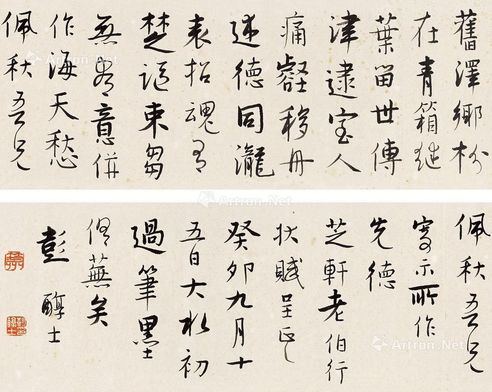 舊澤鄉枌
在青箱
葉留世傳
津逮室人
痛壑移舟
述德同瀧
表招魂有
楚謳束芻
無意併
作海天愁
佩秋吾兄
佩秋吾兄
寄示所作
先德
芝軒老伯行
狀賦呈正
癸卯九月十
五日大水初
過筆墨
俱蕪矣
彭醇士
Artron.Net